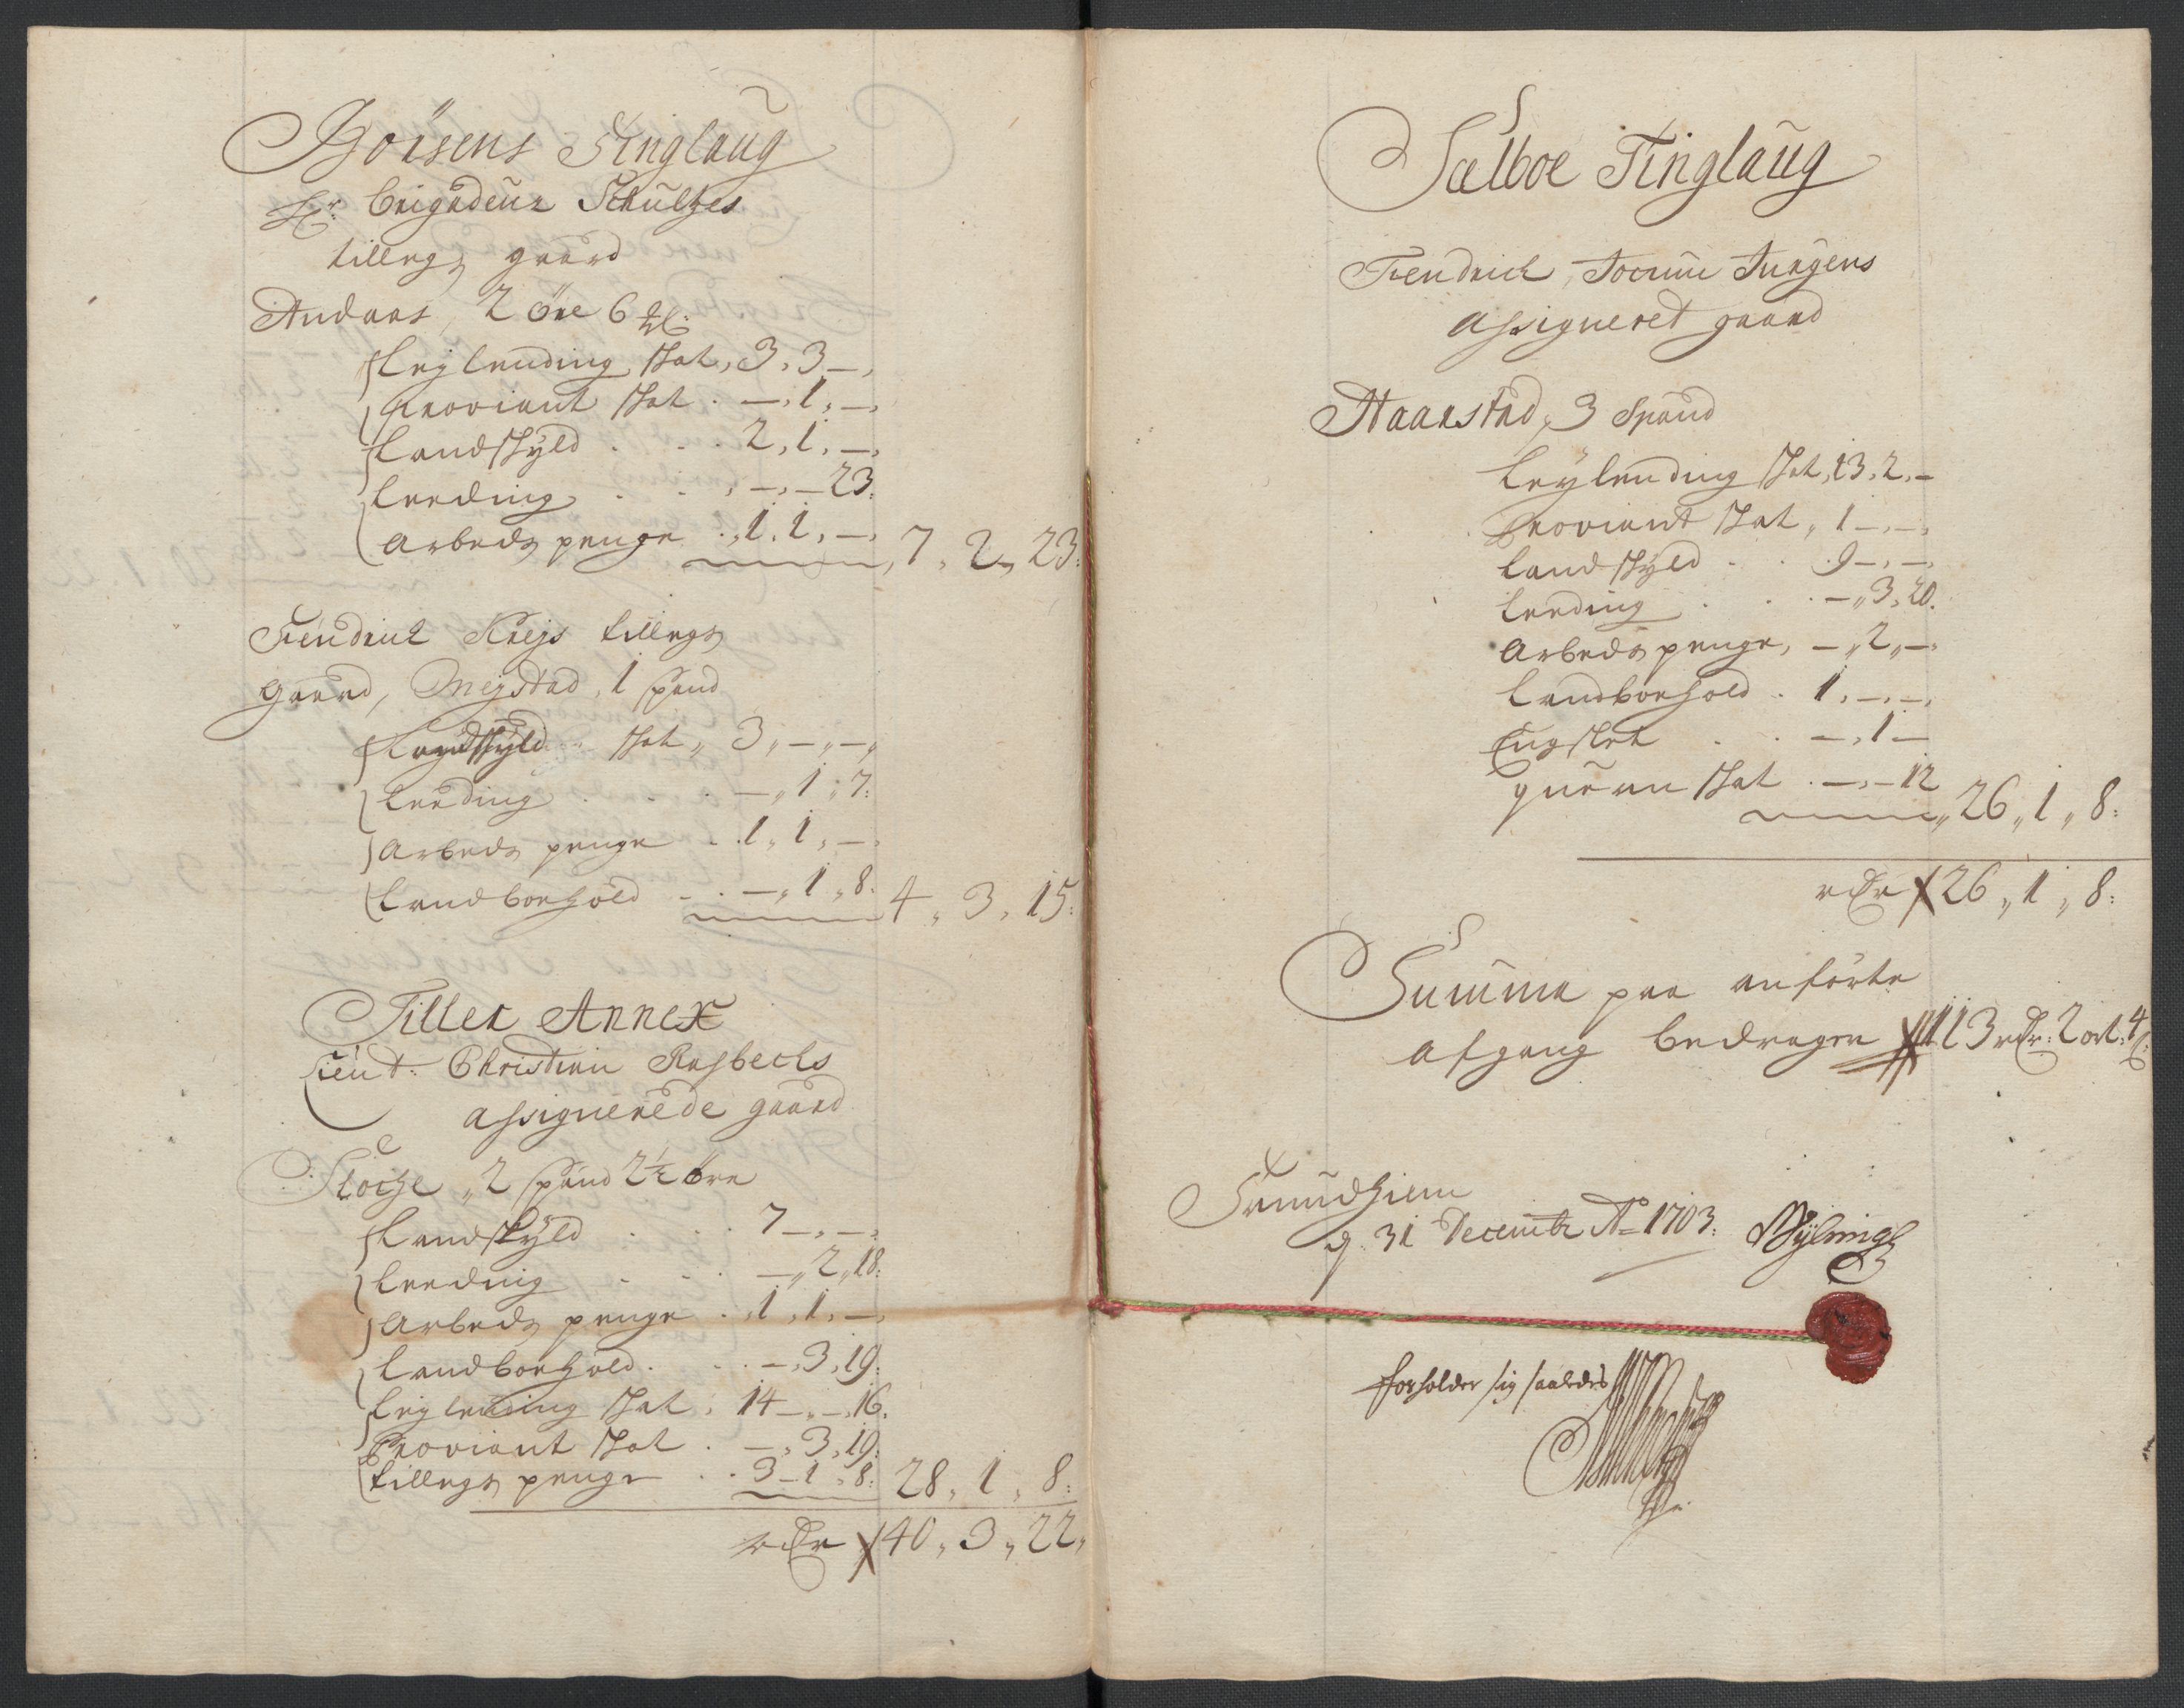 Börsens Tinglaug
Hr: Brigadeur Schultzes
tillegs gaard
Andaas, 2 öre 6 ℔:
Leylending Skat, 3, 3 –,
Proviant Skat . –, 1, –,
Landskyld . . . 2, 1, –,
Leeding . . , –, – 23:
Arbeds penge . , 1, 1, –, 7, 2, 23:
Fendrich Kreys tillegs
gaard, Megstad, 1 spand
Landskyld Skat „ 3 „ – „ – „
Leeding . . . – „ 1 „ 7:
Arbeds penge . . 1, 1, –
Landboehold . . – „ 1 „ 8: 4 „ 3, 15:
Tiller Annex
Leut: Christian Rasbechs
assignerede gaard
Kloche „ 2 spand 2½ öre
Landskyld . . . 7 –, –,
Leeding . . . – „ 2 „ 18:
Arbeds penge . , 1, 1, –,
Landboehold . . . –, 3, 19:
Leylending Skat, 14 – „ –, 16.
Proviant Skat . –, 3, 19:
tillegs penge . . 3 – 1 „ 8: 28, 1, 8:
rdr 40, 3 „ 22 „
Sælboe Tinglaug
Fendrich, Jocum Jurgens
assigneret gaard
Haarstad, 3 Spand
Leylending Skat, 13, 2, –
Proviant Skat „ 1 –, –,
Landskyld . . . 9 –, –,
Leeding . . . – „ 3, 20.
Arbeds penge, – „ 2 „ –
Landboehold . 1, –, –,
Engslet . . –, 1 –
Quern Skat . –, – 12
„ 26 „ 1 „ 8:
rdr 26 „ 1 „ 8:
Summa paa anförte
afgang bedragen 113 rdr: 2 ort: 4 s:
Trundhiem
d: 31 Decembr Ao 1703:
forholder sig saaledes